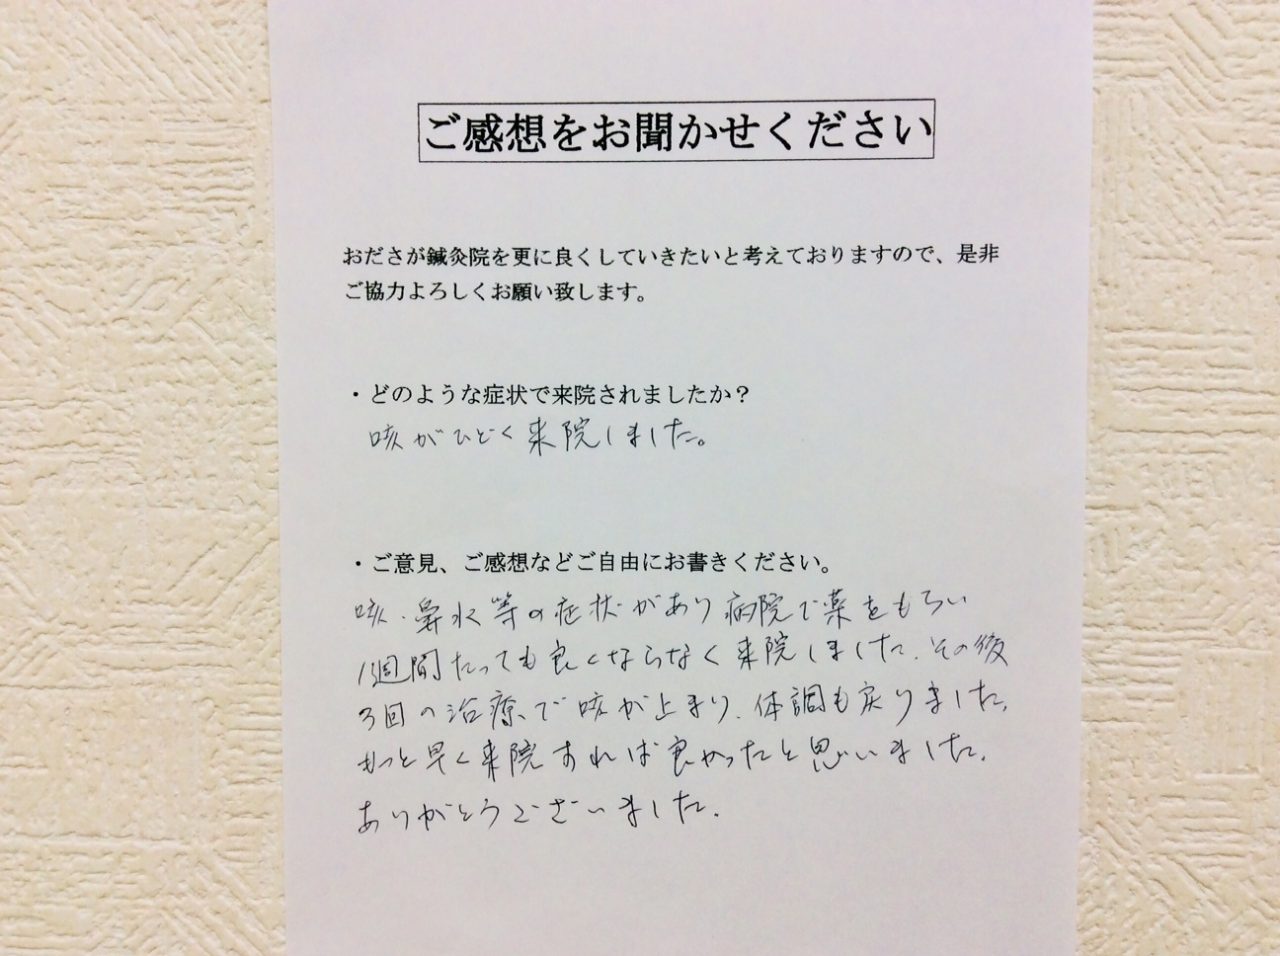 ご感想をお聞かせください
おださが鍼灸院を更に良くしていきたいと考えておりますので、是非
ご協力よろしくお願い致します。
・どのような症状で来院されましたか？
咳がひどく来院しました。
・ご意見、ご感想などご自由にお書きください。
咳・鼻水等の症状があり病院で薬をもらい
1週間たっても良くならなく来院しました。その後
3回の治療で咳が止まり、体調も戻りました。
もっと早く来院すれば良かったと思いました。
ありがとうございました。